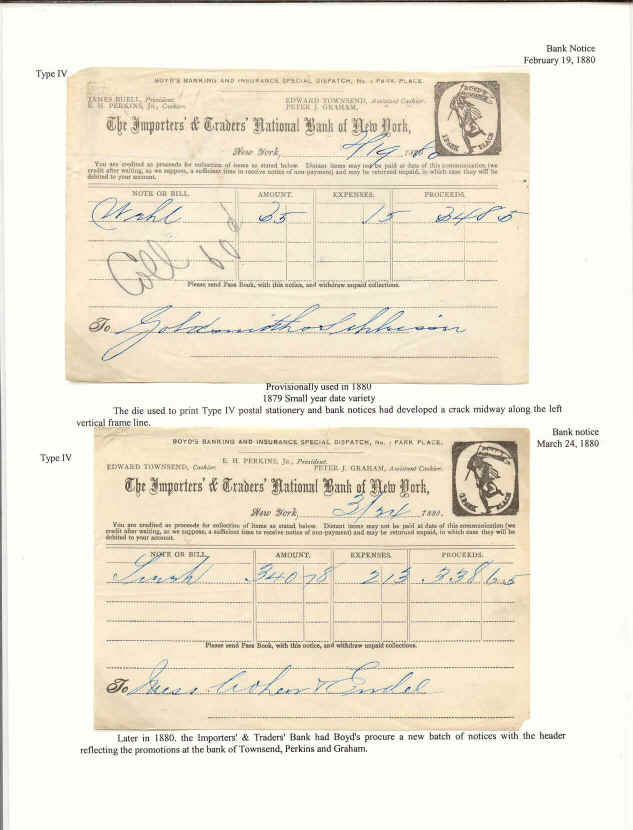 Bank Notice
February 19, 1880
Type IV
BOYD'S BANKING AND INSURANCE SPECIAL DISPATCH, No. 1 PARK PLACE.
JAMES BUELL, President.
E. H. PERKINS, Jr., Cashier.
EDWARD TOWNSEND, Assistant Cashier.
PETER J. GRAHAM,
BOYD'S
1 PARK PLACE
The Importers' & Traders' National Bank of New York,
New York,
You are credited as proceeds for collection of items as stated below. Distant items may not be paid at date of this communication (we
credit after waiting, as we suppose, a sufficient time to receive notice of non-payment) and may be returned unpaid, in which case they will be
debited to your account.
NOTE OR BILL. AMOUNT. EXPENSES. PROCEEDS.
Wahl 35 15 3485
Coll
Please send Pass Book, with this notice, and withdraw unpaid collections.
To
Provisionally used in 1880
1879 Small year date variety
The die used to print Type IV postal stationery and bank notices had developed a crack midway along the left
vertical frame line.
Bank notice
March 24, 1880
Type IV
BOYD'S BANKING AND INSURANCE SPECIAL DISPATCH, No. 1 PARK PLACE.
E. H. PERKINS, Jr., President.
EDWARD TOWNSEND, Cashier. PETER J. GRAHAM, Assistant Cashier.
1 PARK PLACE
The Importers' & Traders' National Bank of New York,
New York, 3/24 1880.
You are credited as proceeds for collection of items as stated below. Distant items may not be paid at date of this communication (we
credit after waiting, as we suppose, a sufficient time to receive notice of non-payment) and may be returned unpaid, in which case they will be
debited to your account.
NOTE OR BILL. AMOUNT. EXPENSES. PROCEEDS.
340 78 2 13 338 65
Please send Pass Book, with this notice, and withdraw unpaid collections.
To Mess Cohen & Endel
Later in 1880, the Importers' & Traders' Bank had Boyd's procure a new batch of notices with the header
reflecting the promotions at the bank of Townsend, Perkins and Graham.